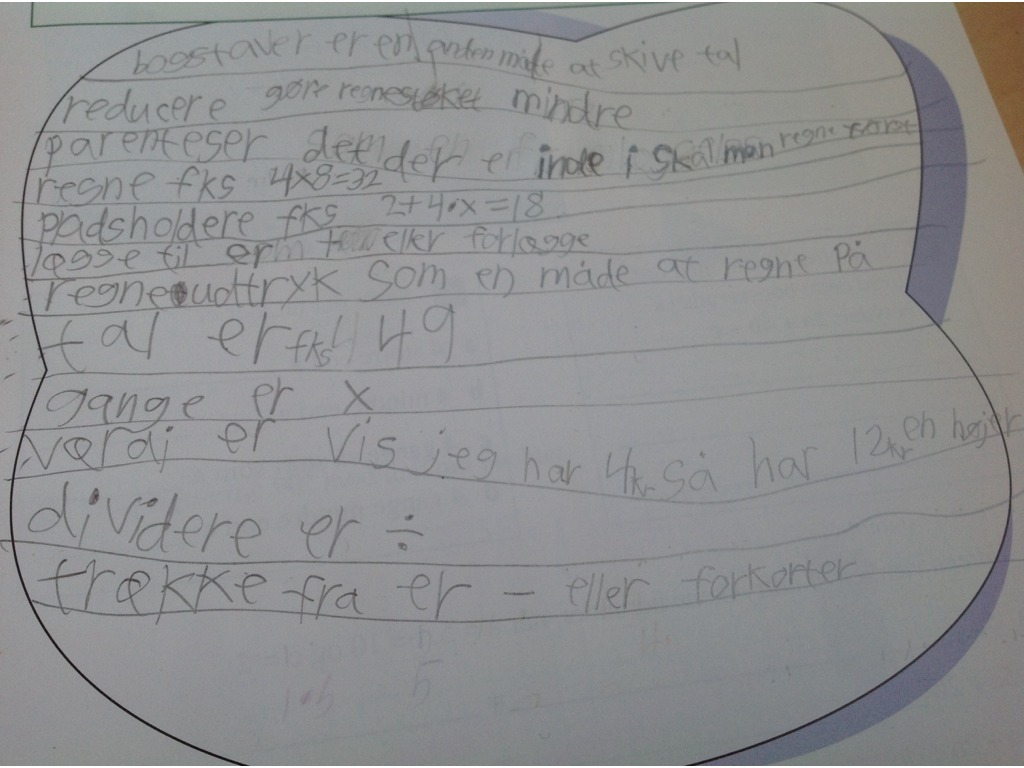 bogstaver er en anden måde at skive tal
reducere gøre regnestøket mindre
parenteser det der er inde i skal man regne først
regne fks 4x8=32
pladsholdere fks 2+4·x=18
lægge til er eller forlægge
regneudtryk som en måde at regne på
tal er fks 4 49
gange er x
værdi er vis jeg har 4kr så har 12kr en højer
dividere er ÷
trække fra er - eller forkorter